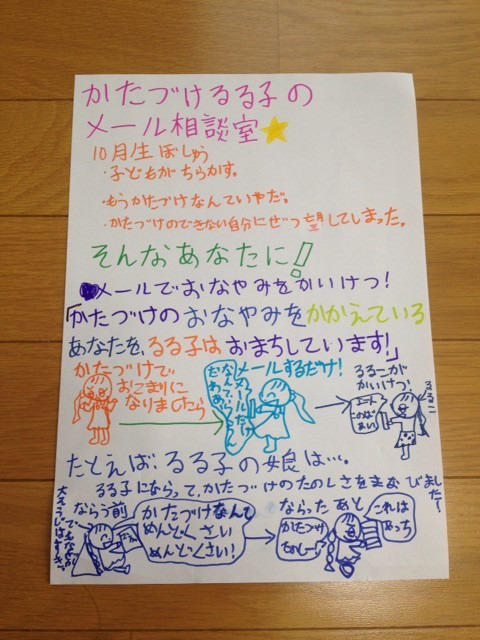 かたづけるる子の
メール相談室
10月生ぼしゅう
・子どもがちらかす。
・もうかたづけなんていやだ。
・かたづけのできない自分にぜつ望してしまった。
そんなあなたに!
メールでおなやみをかいけつ!
「かたづけのおなやみをかかえている
あなたを、るる子はおまちしています!」
かたづけで
おこまりに
なりましたら
メールするだけ!
るる子が
かいけつ!
るるこ
えーと
このばあい
たとえば、るる子の娘は…。
るる子にならって、かたづけのたのしさをまなびました!
ならう前
かたづけなんて
めんどくさい
めんどくさい!
ならったあと
かたづけ
たのしー!
これは
こっち